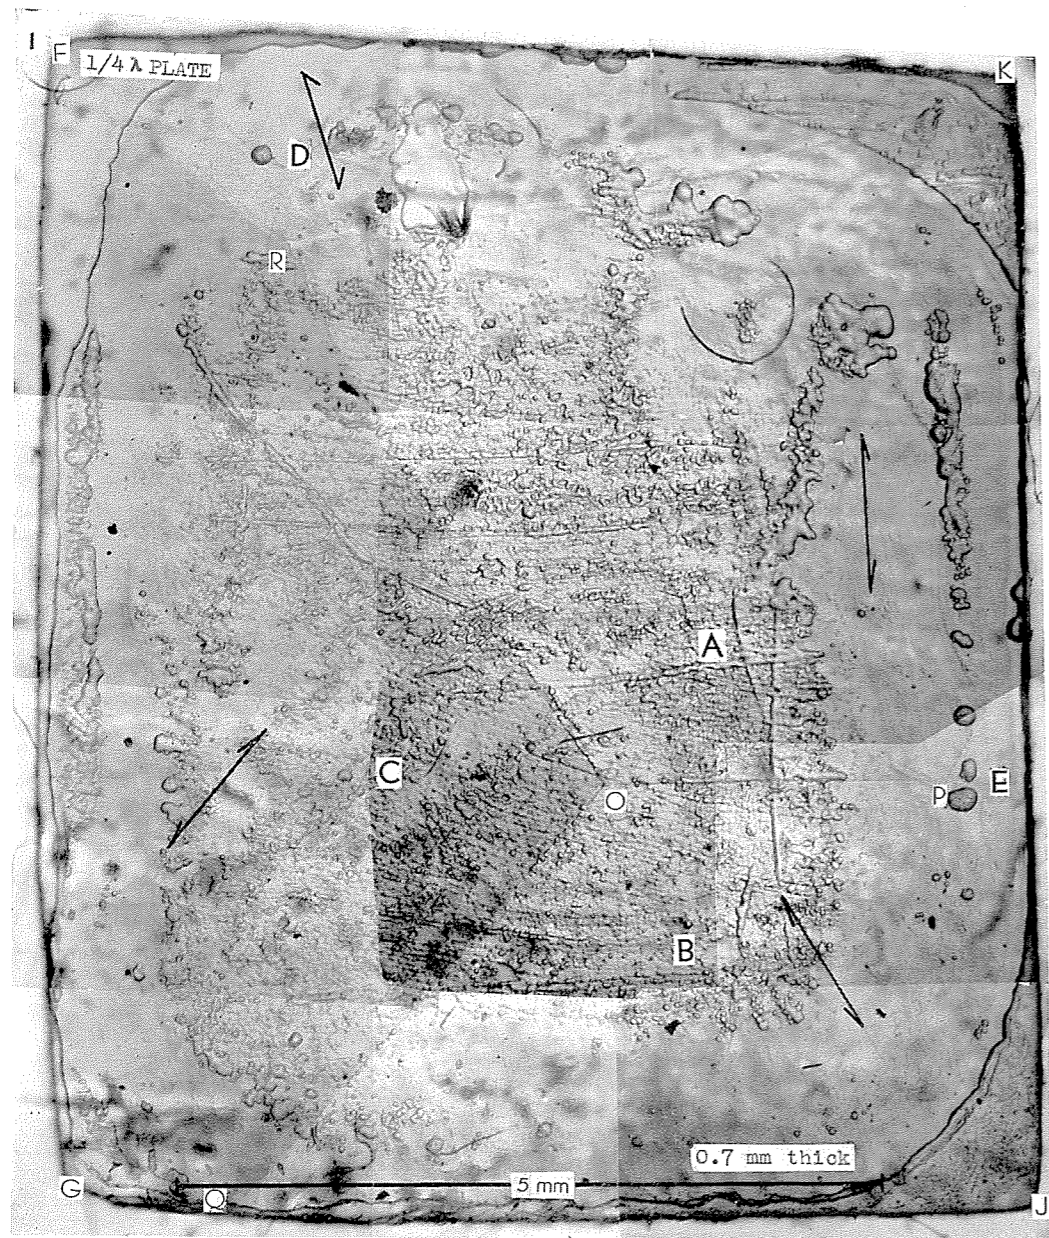 1
F
1/4 λ PLATE
K
D
R
A
C
O
P
E
B
0.7 mm thick
5 mm
G
Q
J